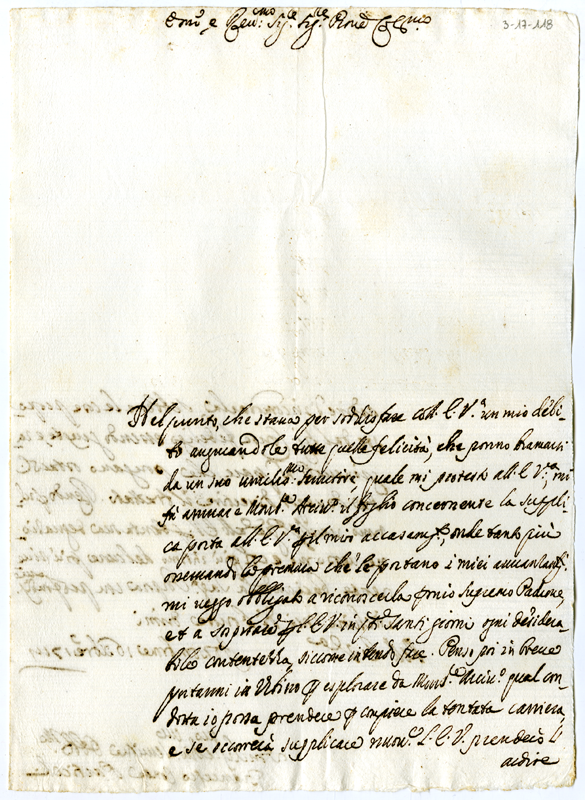 3-17-118
e Rev.mo Sig.re Sig.re Pron
Nel punto, che stava per soddisfare coll' E. V.ra un mio debi-
to augurandole tutte quelle felicità, che ponno bramarsi
da un suo umiliss.mo Servitore quale mi protesto all' E. V.ra mi
fù avvisare Mons.r Arciv.o il foglio concernente la suppli-
ca porta all' E. V.ra p il mio accasam.to, onde tanto più
osservando le premure che le portano i miei avvantaggi
mi veggo obbligato a riconoscerla p mio Supremo Padrone,
et a Sospirare p l' E. V. in q.ti Santi giorni ogni desidera-
bile contentezza, siccome intendo fare. Penso poi in breve
portarmi in Urbino p esplorare da Mons.r Arciv.o qual con-
dotta io possa prendere p compiere la tentata carriera,
e se occorrerà supplicare nuov.te L' E. V. prenderò l'
ardire